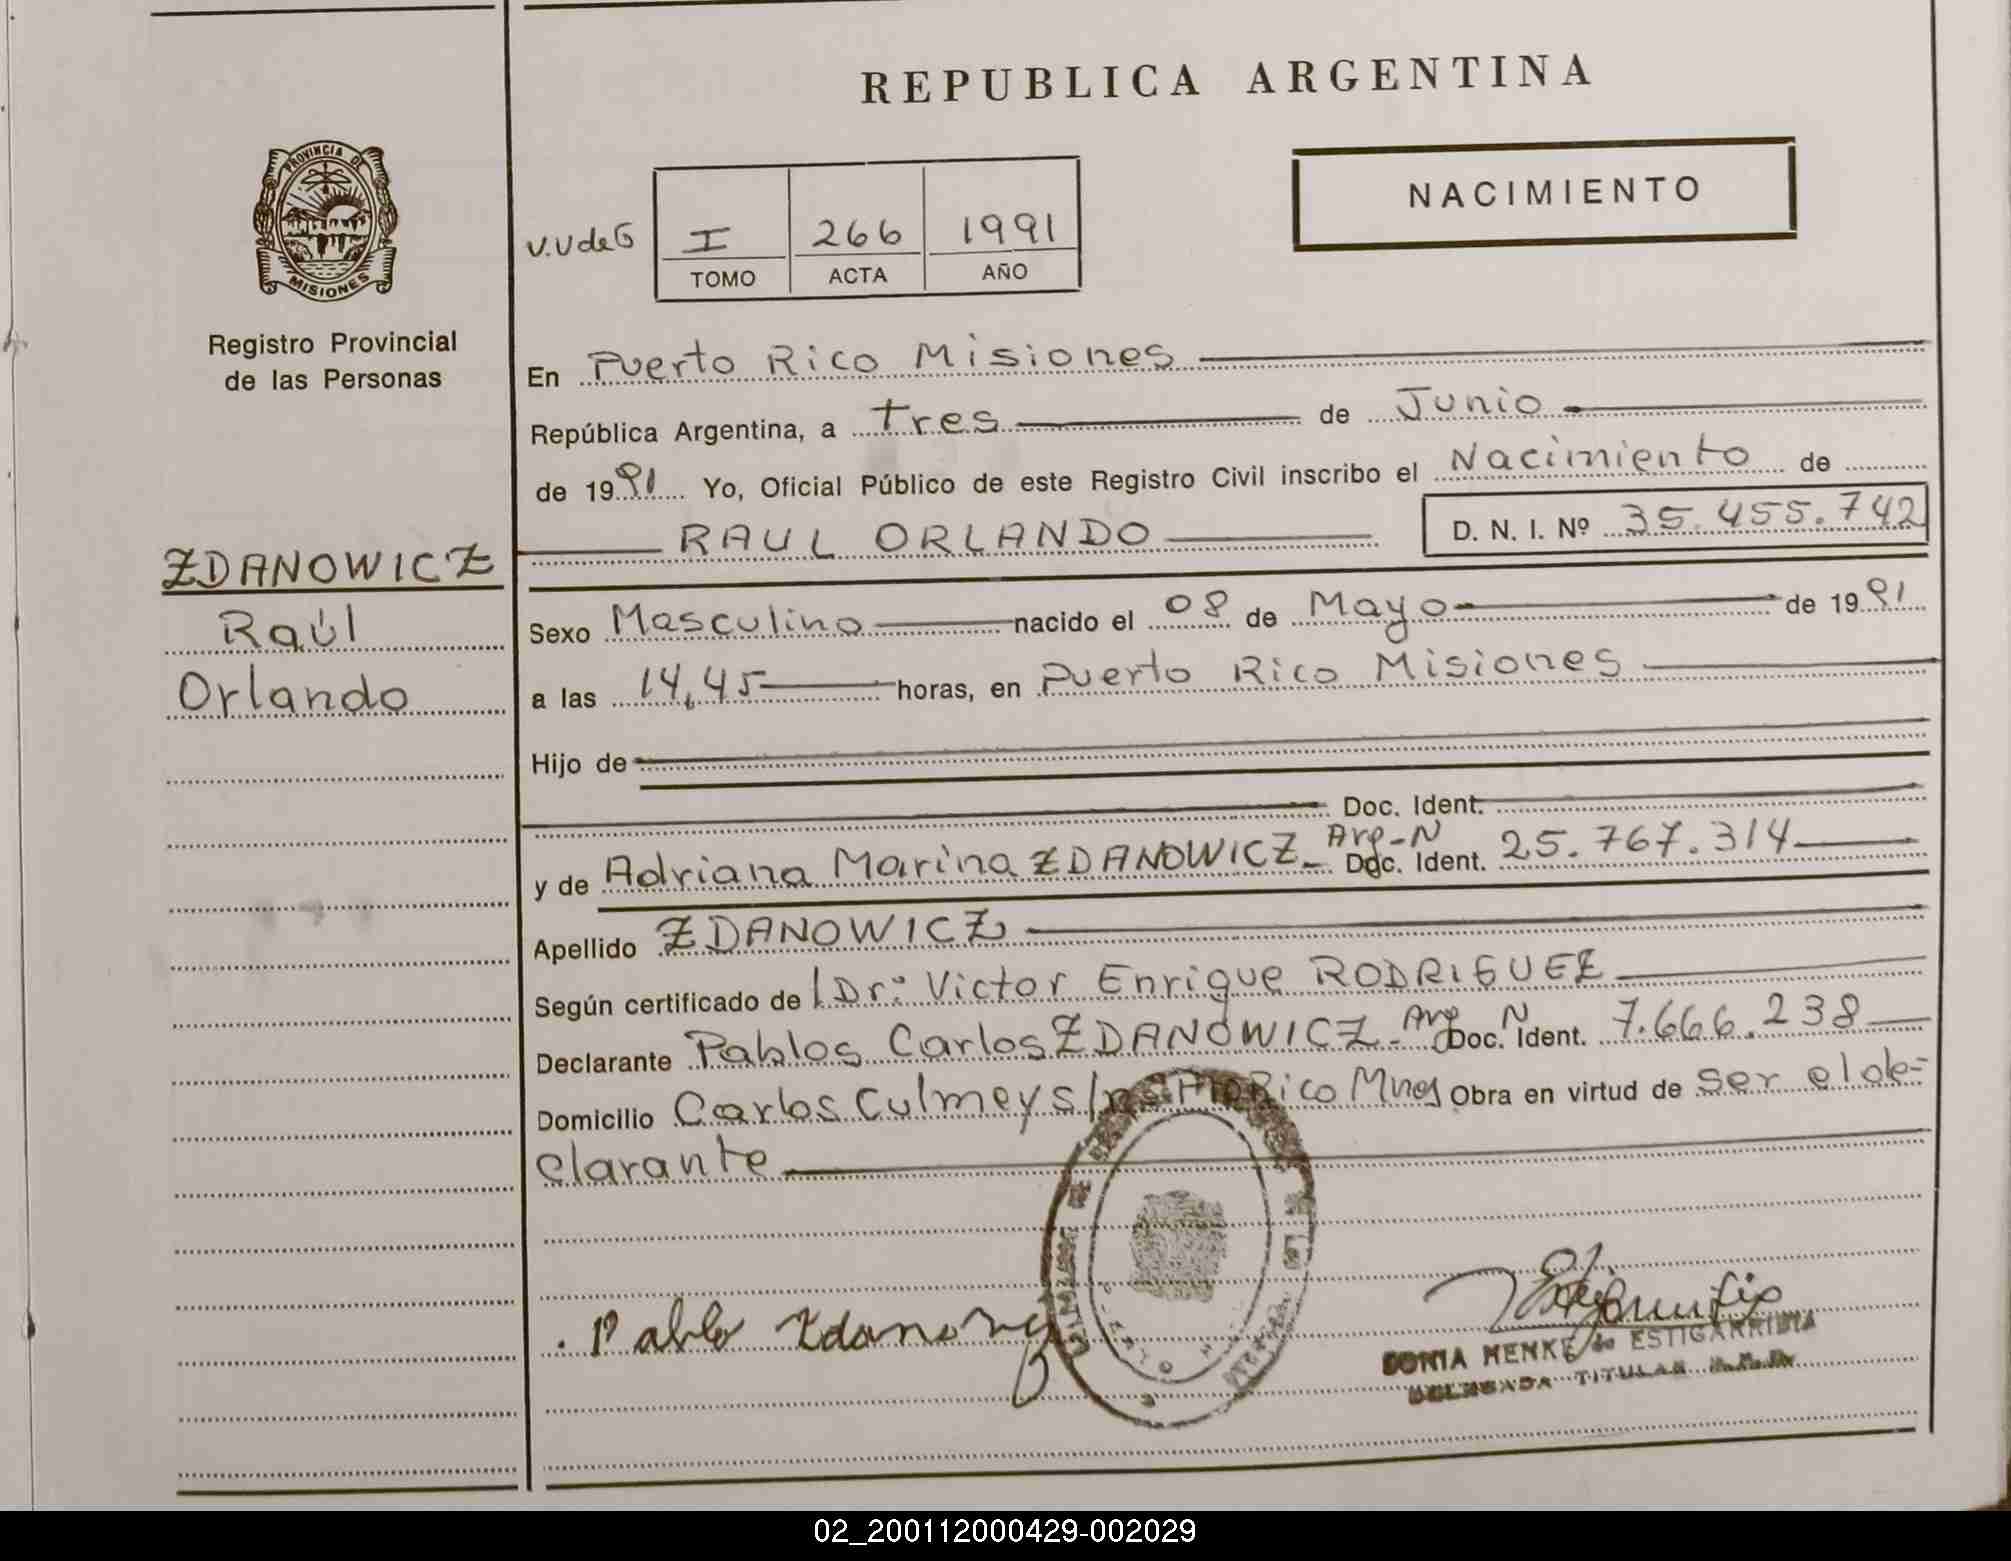 REPUBLICA ARGENTINA
NACIMIENTO
PROVINCIA DE
MISIONES
Registro Provincial
de las Personas
V.V de G
I 266 1991
TOMO ACTA AÑO
En Puerto Rico Misiones
República Argentina, a tres de Junio
de 1991 Yo, Oficial Público de este Registro Civil inscribo el Nacimiento de
RAUL ORLANDO D. N. I. Nº 35.455.742
ZDANOWICZ
Raúl
Orlando
Sexo Masculino nacido el 08 de Mayo de 1991
a las 14,45 horas, en Puerto Rico Misiones
Hijo de
Doc. Ident.
y de Adriana Marina ZDANOWICZ - Arg-N Doc. Ident. 25.767.314
Apellido ZDANOWICZ
Según certificado de Dr: Victor Enrique RODRIGUEZ
Declarante Pablos Carlos ZDANOWICZ - Arg N Doc. Ident. 7.666.238
Domicilio Carlos Culmey s/n Rico Mnes Obra en virtud de ser el de=
clarante
Pablo
SONIA MENKE de ESTIGARRIBIA
DELEGADA TITULAR
02_200112000429-002029